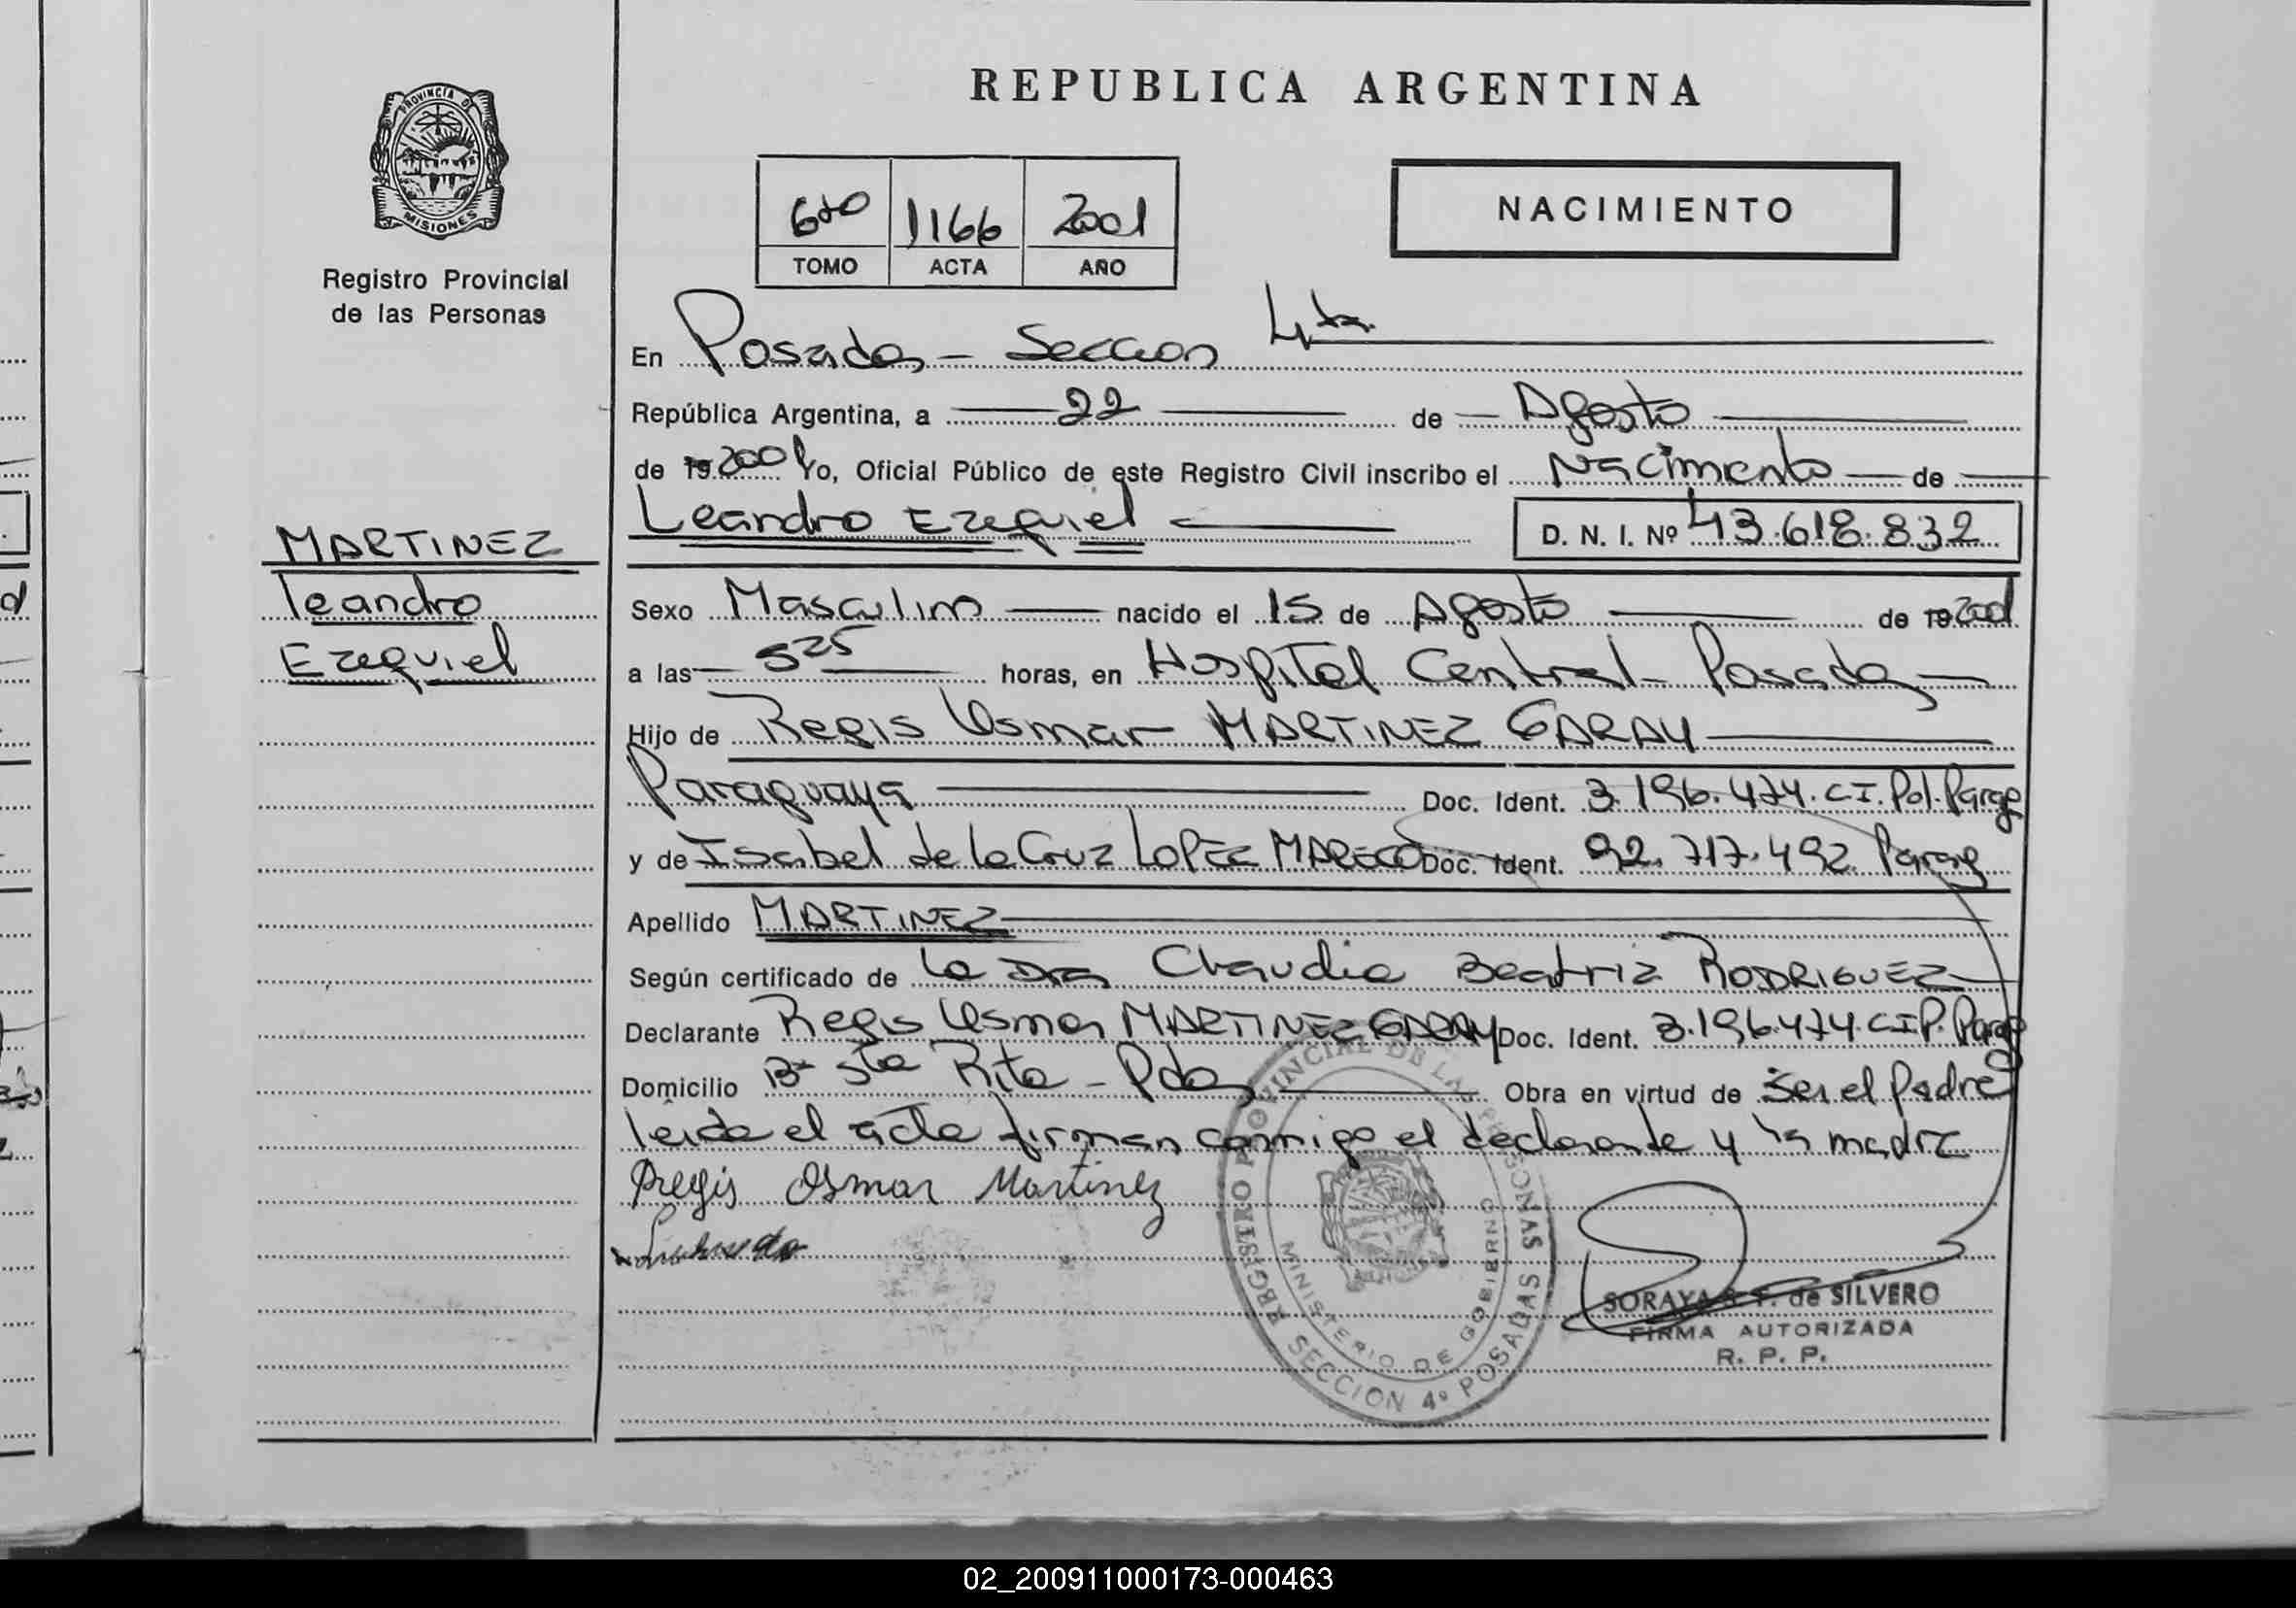 REPUBLICA ARGENTINA
PROVINCIA DE
MISIONES
Registro Provincial
de las Personas
1166 2001
TOMO ACTA AÑO
NACIMIENTO
En Posadas - Seccion 4ta.
República Argentina, a 22 de Agosto
de 19 2001 Yo, Oficial Público de este Registro Civil inscribo el Nacimiento de
Leandro Ezequiel D. N. I. Nº 43.618.832
MARTINEZ
Leandro
Ezequiel
Sexo Masculino nacido el 15 de Agosto de 19 2001
a las 5 25 horas, en Hospital Central - Posadas
Hijo de Regis Osmar MARTINEZ GARAY
Paraguaya Doc. Ident. 3.196.474. C.I. Pol. Parag
y de Isabel de la Cruz LOPEZ MARECO Doc. Ident. 92.717.492 Parag
Apellido MARTINEZ
Según certificado de La Dra Claudia Beatriz RODRIGUEZ
Declarante Regis Osmar MARTINEZ GARAY Doc. Ident. 3.196.474. C I P. Parag
Domicilio Bº Sta Rita - Pdas Obra en virtud de Ser el Padre
leida el acta firman conmigo el declarante y la madre
Regis Osmar Martinez
REGISTRO PROVINCIAL DE LAS PERSONAS
MINISTERIO DE GOBIERNO
SECCION 4º POSADAS
SORAYA de SILVERO
FIRMA AUTORIZADA
R. P. P.
02_200911000173-000463